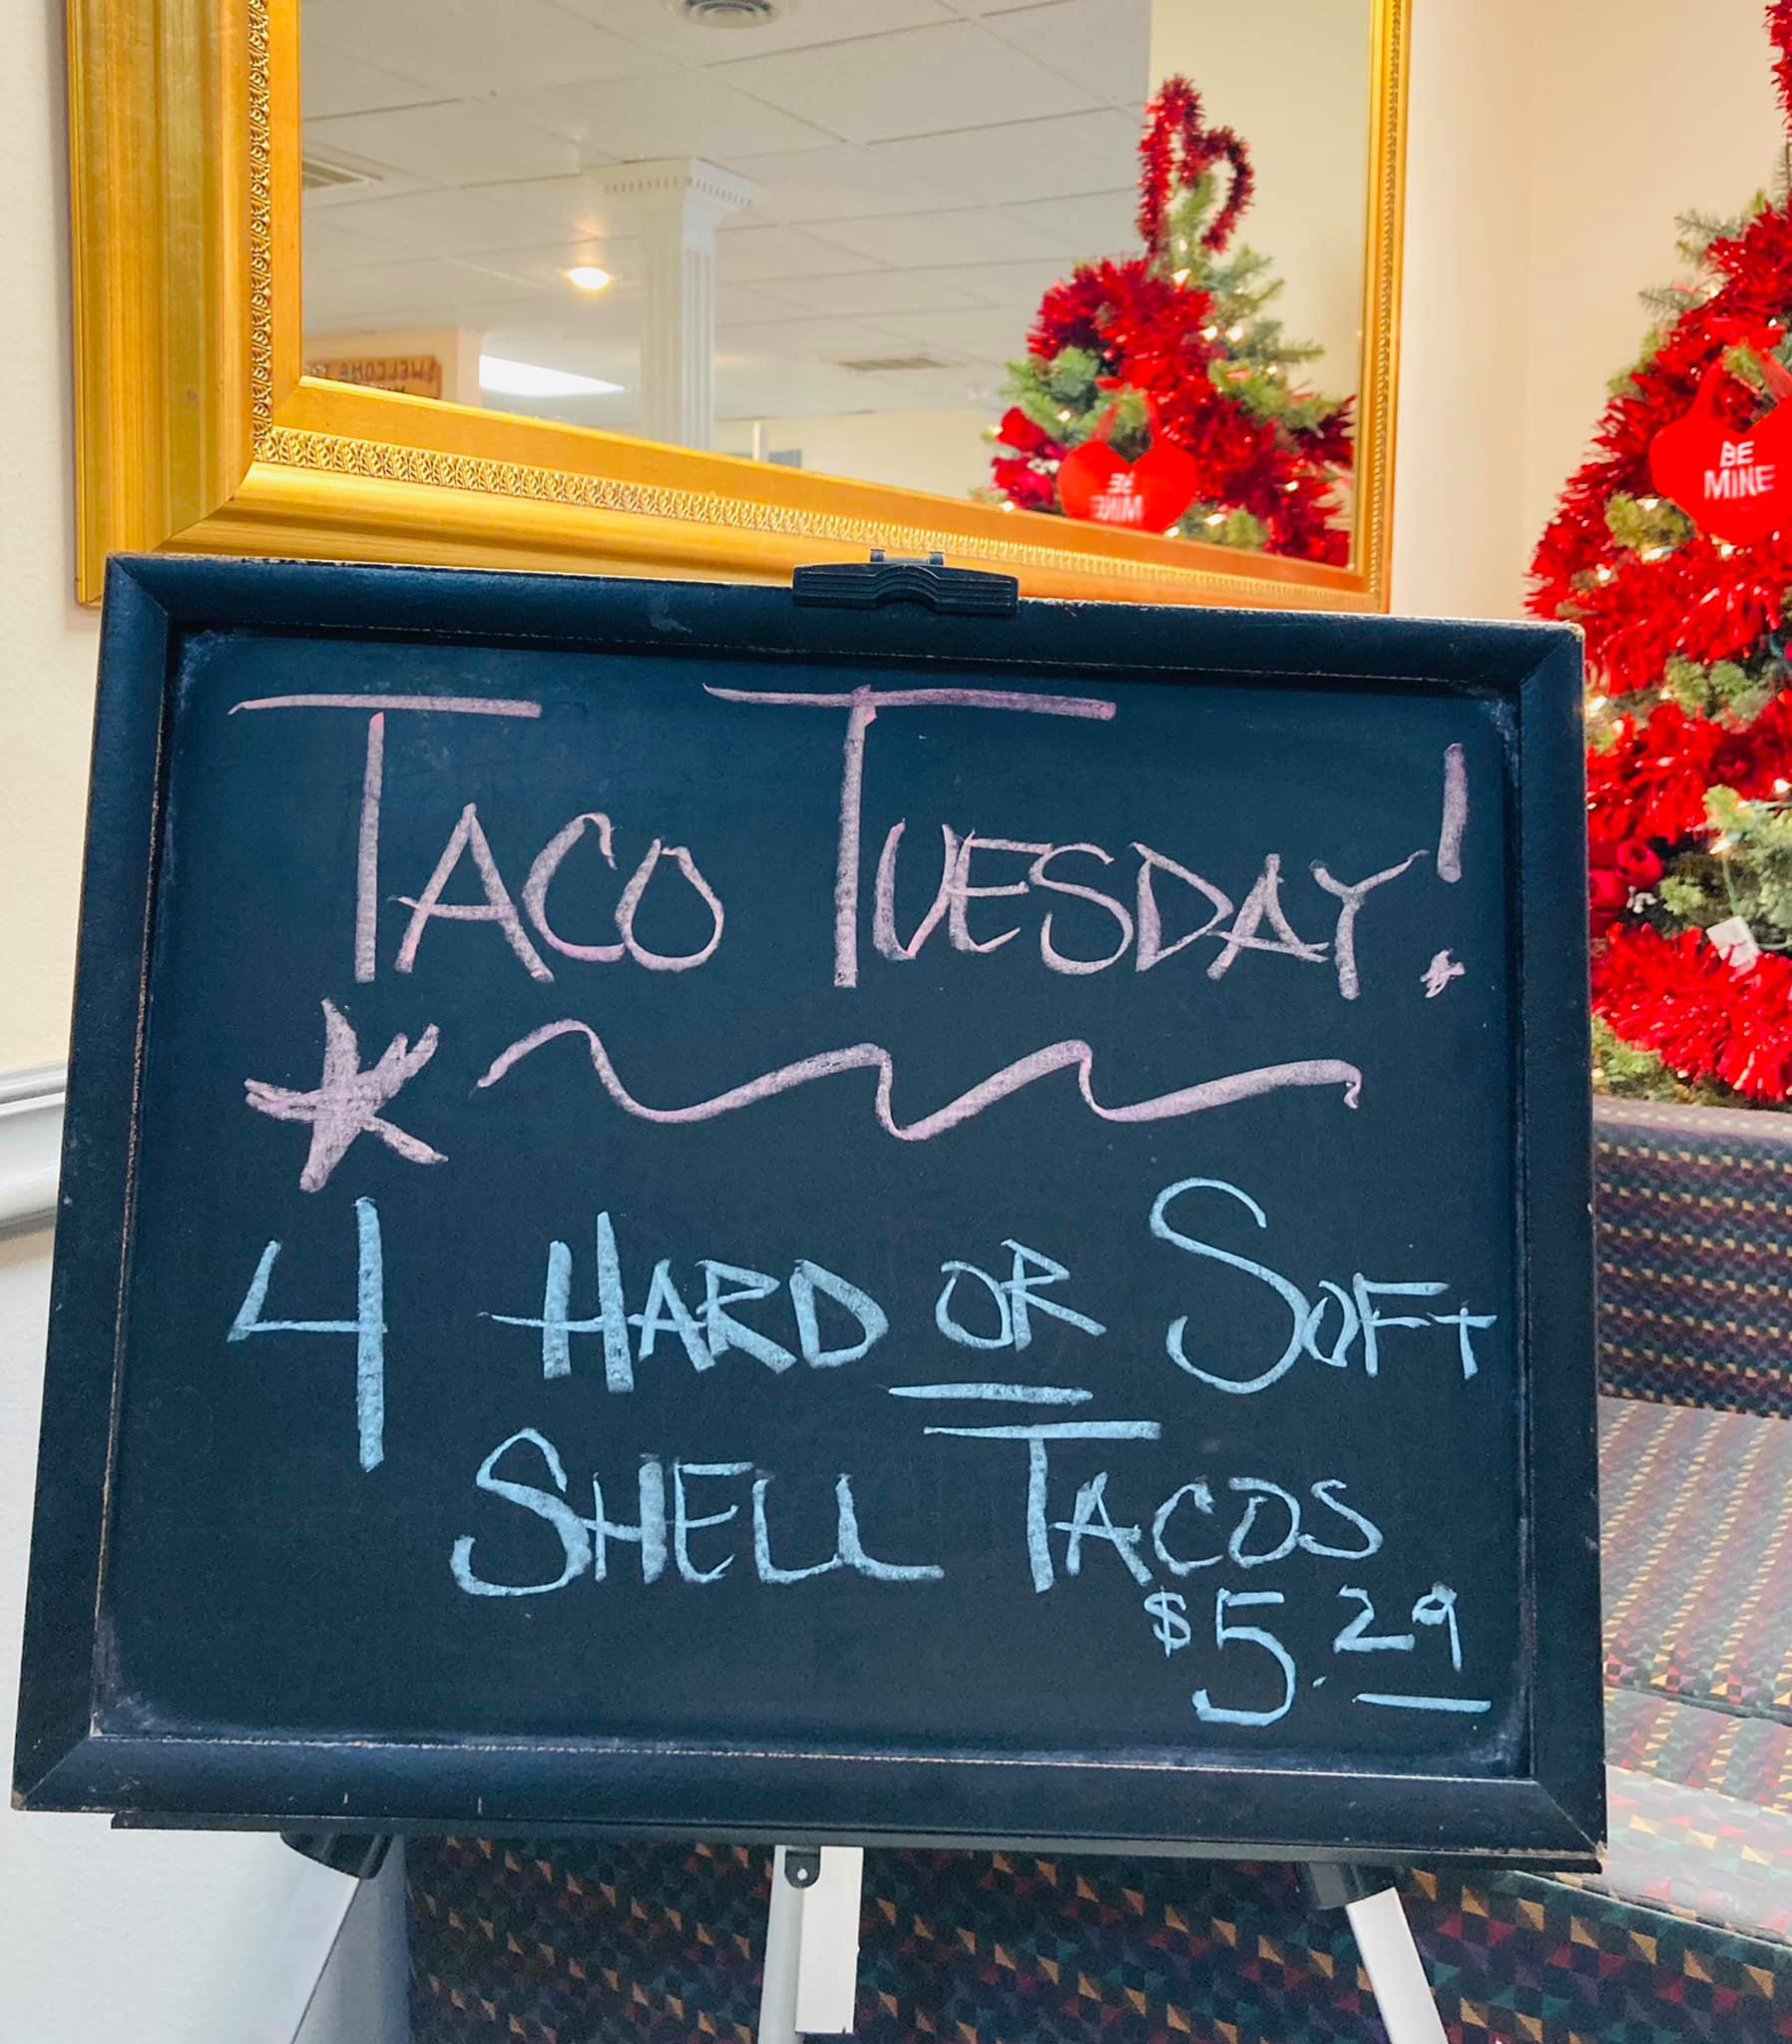 WELCOME TO
BE
MINE
BE
MINE
TACO TUESDAY!
4 HARD OR SOFT
SHELL TACOS
$5.29